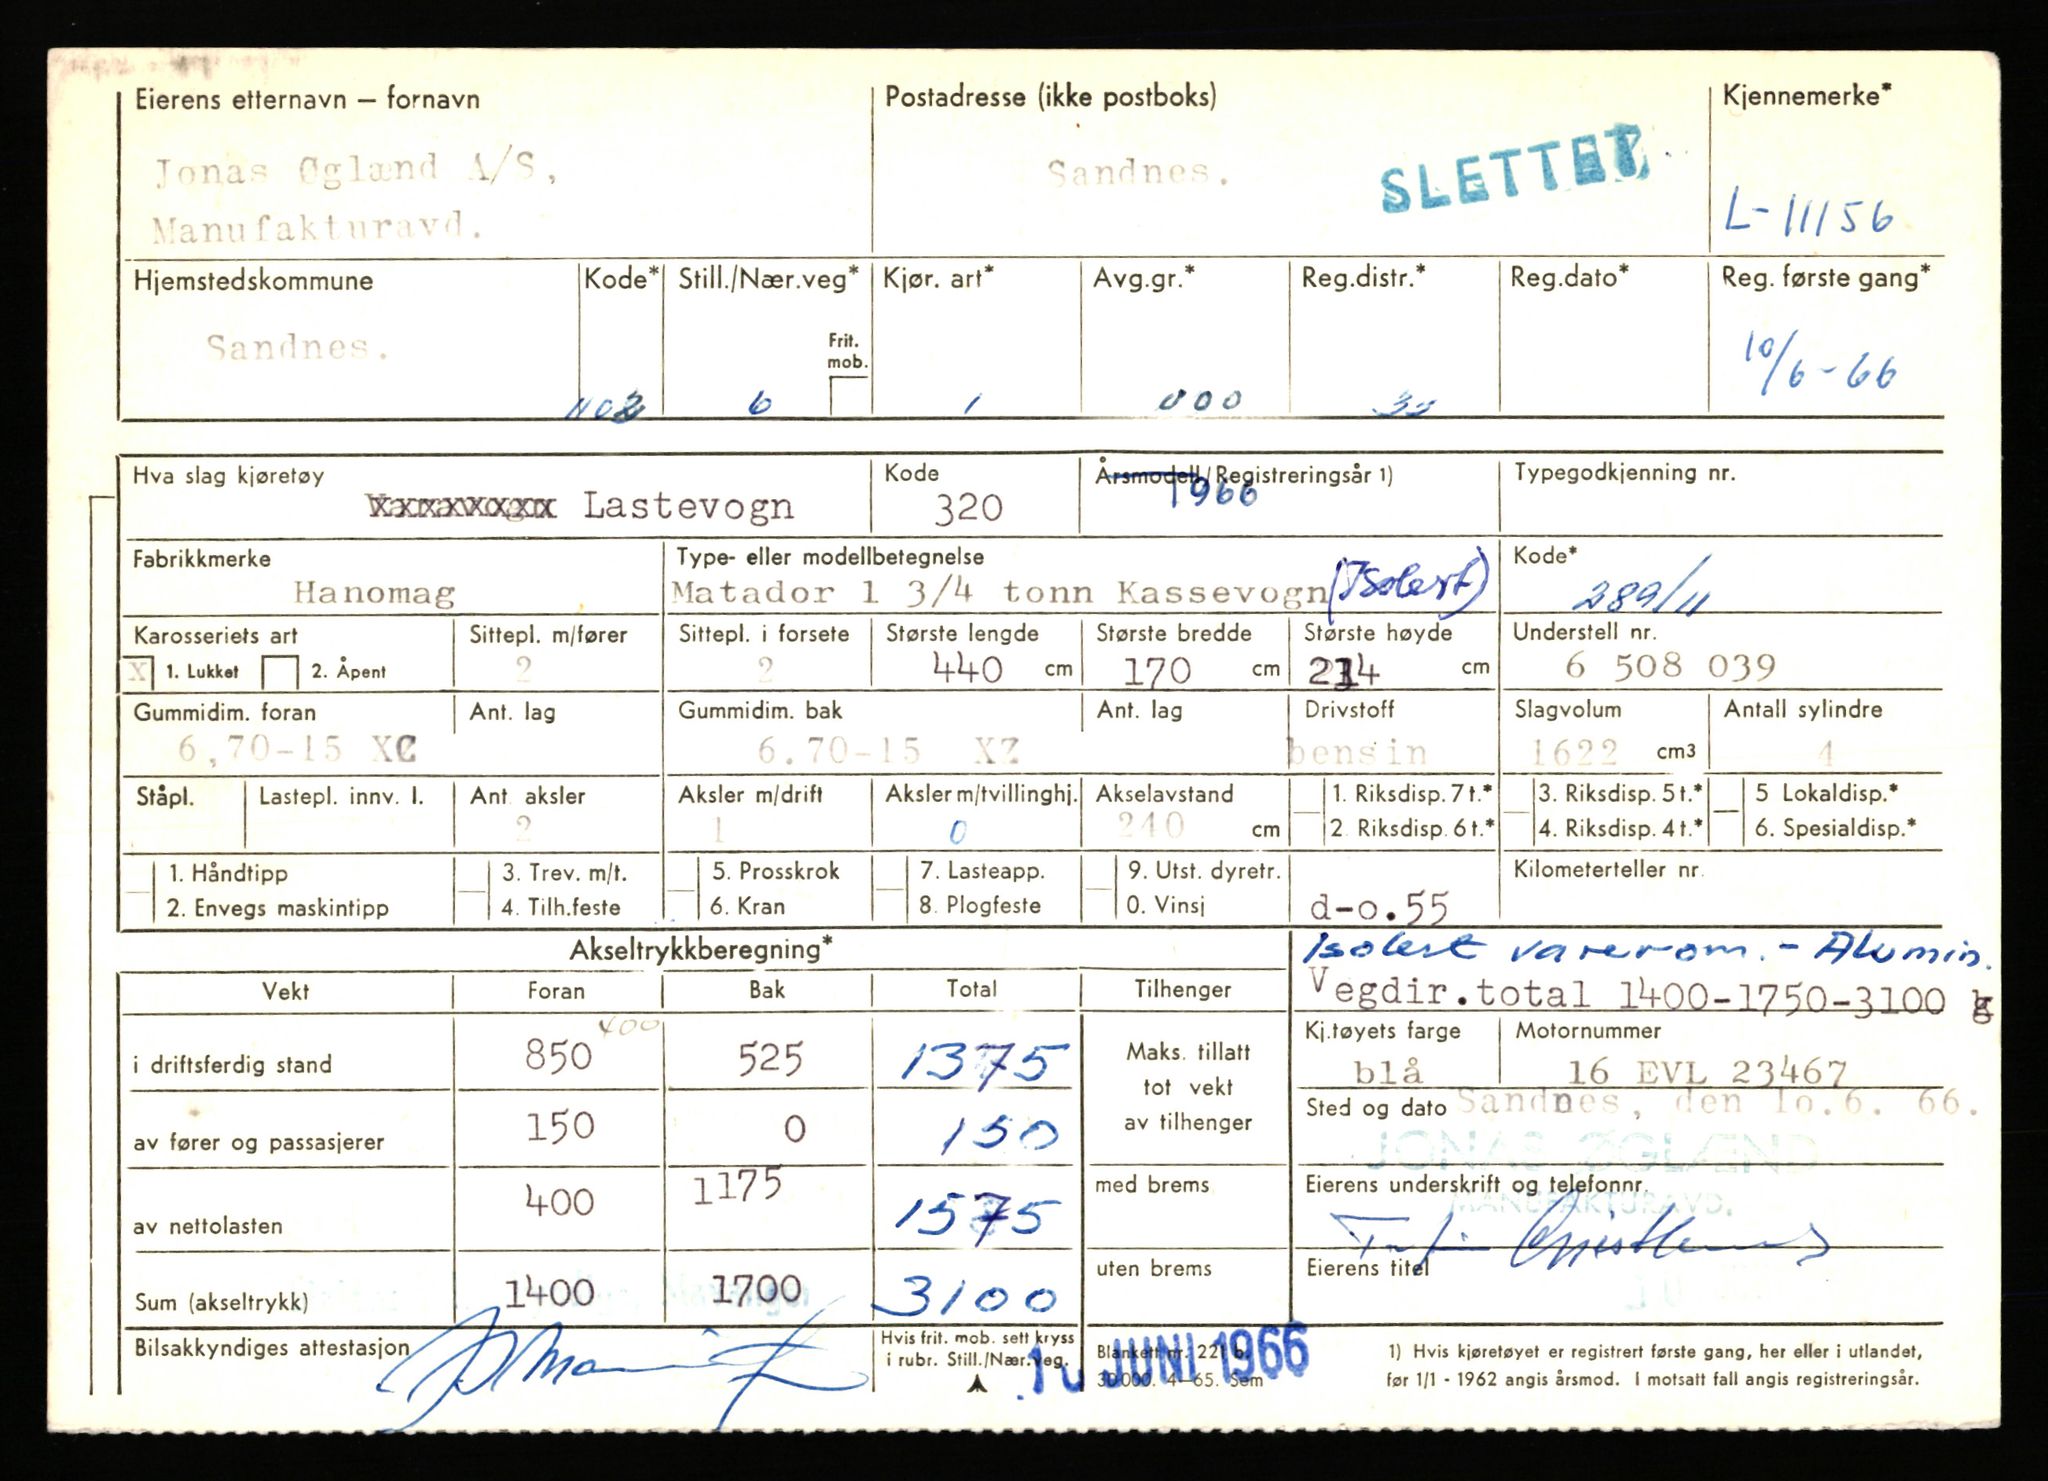 Eierens etternavn – fornavn
Jonas Øglænd A/S,
Manufakturavd.
Postadresse (ikke postboks)
Sandnes.
SLETTET
Kjennemerke*
L-11156
Hjemstedskommune
Sandnes.
Kode*
1102
Still./Nær.veg*
Frit. mob.
6
Kjør. art*
1
Avg.gr.*
000
Reg.distr.*
Reg.dato*
Reg. første gang*
10/6-66
Hva slag kjøretøy
Lastevogn
Kode
320
Årsmodell/Registreringsår 1)
1966
Typegodkjenning nr.
Fabrikkmerke
Hanomag
Type- eller modellbetegnelse
Matador 1 3/4 tonn Kassevogn (Isolert)
Kode*
289/11
Karosseriets art
X 1. Lukket 2. Åpent
Sittepl. m/fører
2
Sittepl. i forsete
2
Største lengde
440 cm
Største bredde
170 cm
Største høyde
cm
Understell nr.
6 508 039
Gummidim. foran
6,70-15
Ant. lag
Gummidim. bak
6.70-15 XZ
Ant. lag
Drivstoff
bensin
Slagvolum
1622 cm3
Antall sylindre
4
Ståpl.
Lastepl. innv. l.
Ant. aksler
2
Aksler m/drift
1
Aksler m/tvillinghj.
0
Akselavstand
240 cm
1. Riksdisp. 7 t.*
2. Riksdisp. 6 t.*
3. Riksdisp. 5 t.*
4. Riksdisp. 4 t.*
5 Lokaldisp.*
6. Spesialdisp.*
1. Håndtipp
2. Envegs maskintipp
3. Trev. m/t.
4. Tilh.feste
5. Prosskrok
6. Kran
7. Lasteapp.
8. Plogfeste
9. Utst. dyretr.
0. Vinsj
d-o.55
Kilometerteller nr.
Akseltrykkberegning*
Isolert varerom. - Alumin.
Vegdir.total 1400-1750-3100 kg
Vekt Foran Bak Total Tilhenger
400
i driftsferdig stand 850 525 1375
Maks. tillatt
tot vekt
av tilhenger
av fører og passasjerer 150 0 150
av nettolasten 400 1175 1575
med brems
Sum (akseltrykk) 1400 1700 3100
uten brems
Kj.tøyets farge
blå
Motornummer
16 EVL 23467
Sted og dato Sandnes, den 10.6. 66.
JONAS ØGLÆND
Eierens underskrift og telefonnr.
MANUFAKTURAVD.
Eierens titel
Bilsakkyndiges attestasjon
Hvis frit. mob. sett kryss
i rubr. Still./Nær.veg.
Blankett nr. 221 b.
30 000. 4–65. Sem
10 JUNI 1966
1) Hvis kjøretøyet er registrert første gang, her eller i utlandet,
før 1/1 - 1962 angis årsmod. I motsatt fall angis registreringsår.